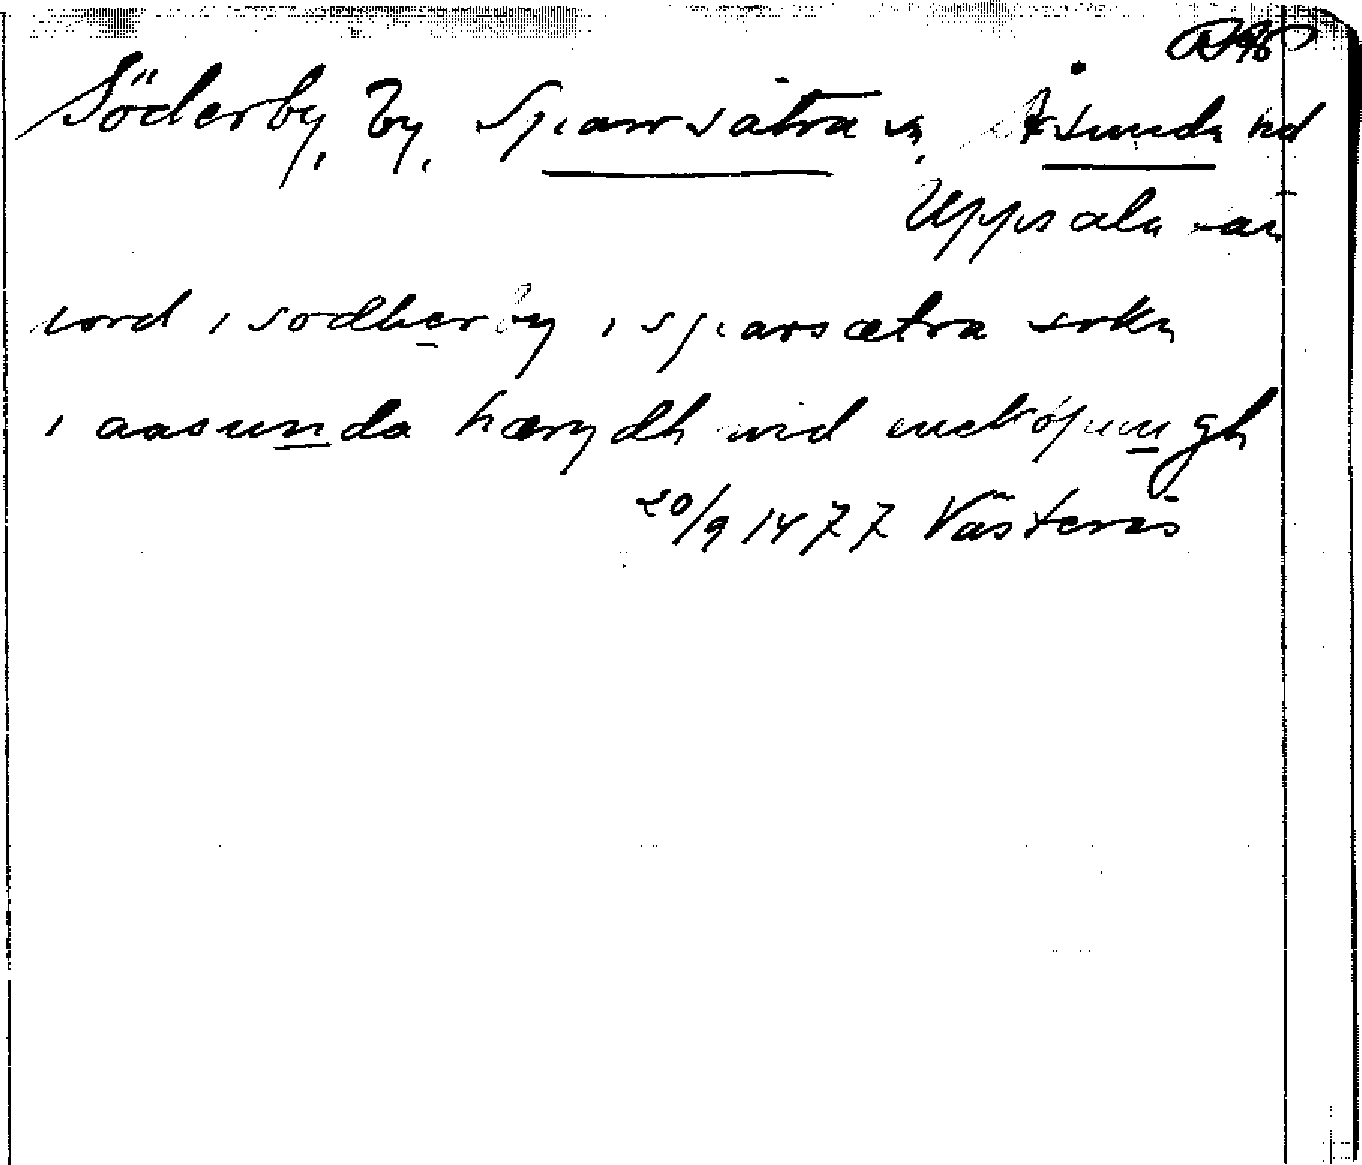 Söderby, by, Sparrsätra sn, Åsunda hd
Uppsala län
iord i sodherby i sparsætra sokn
i aasunda hærydh wid enekøpungh
20/9 1477 Västerås